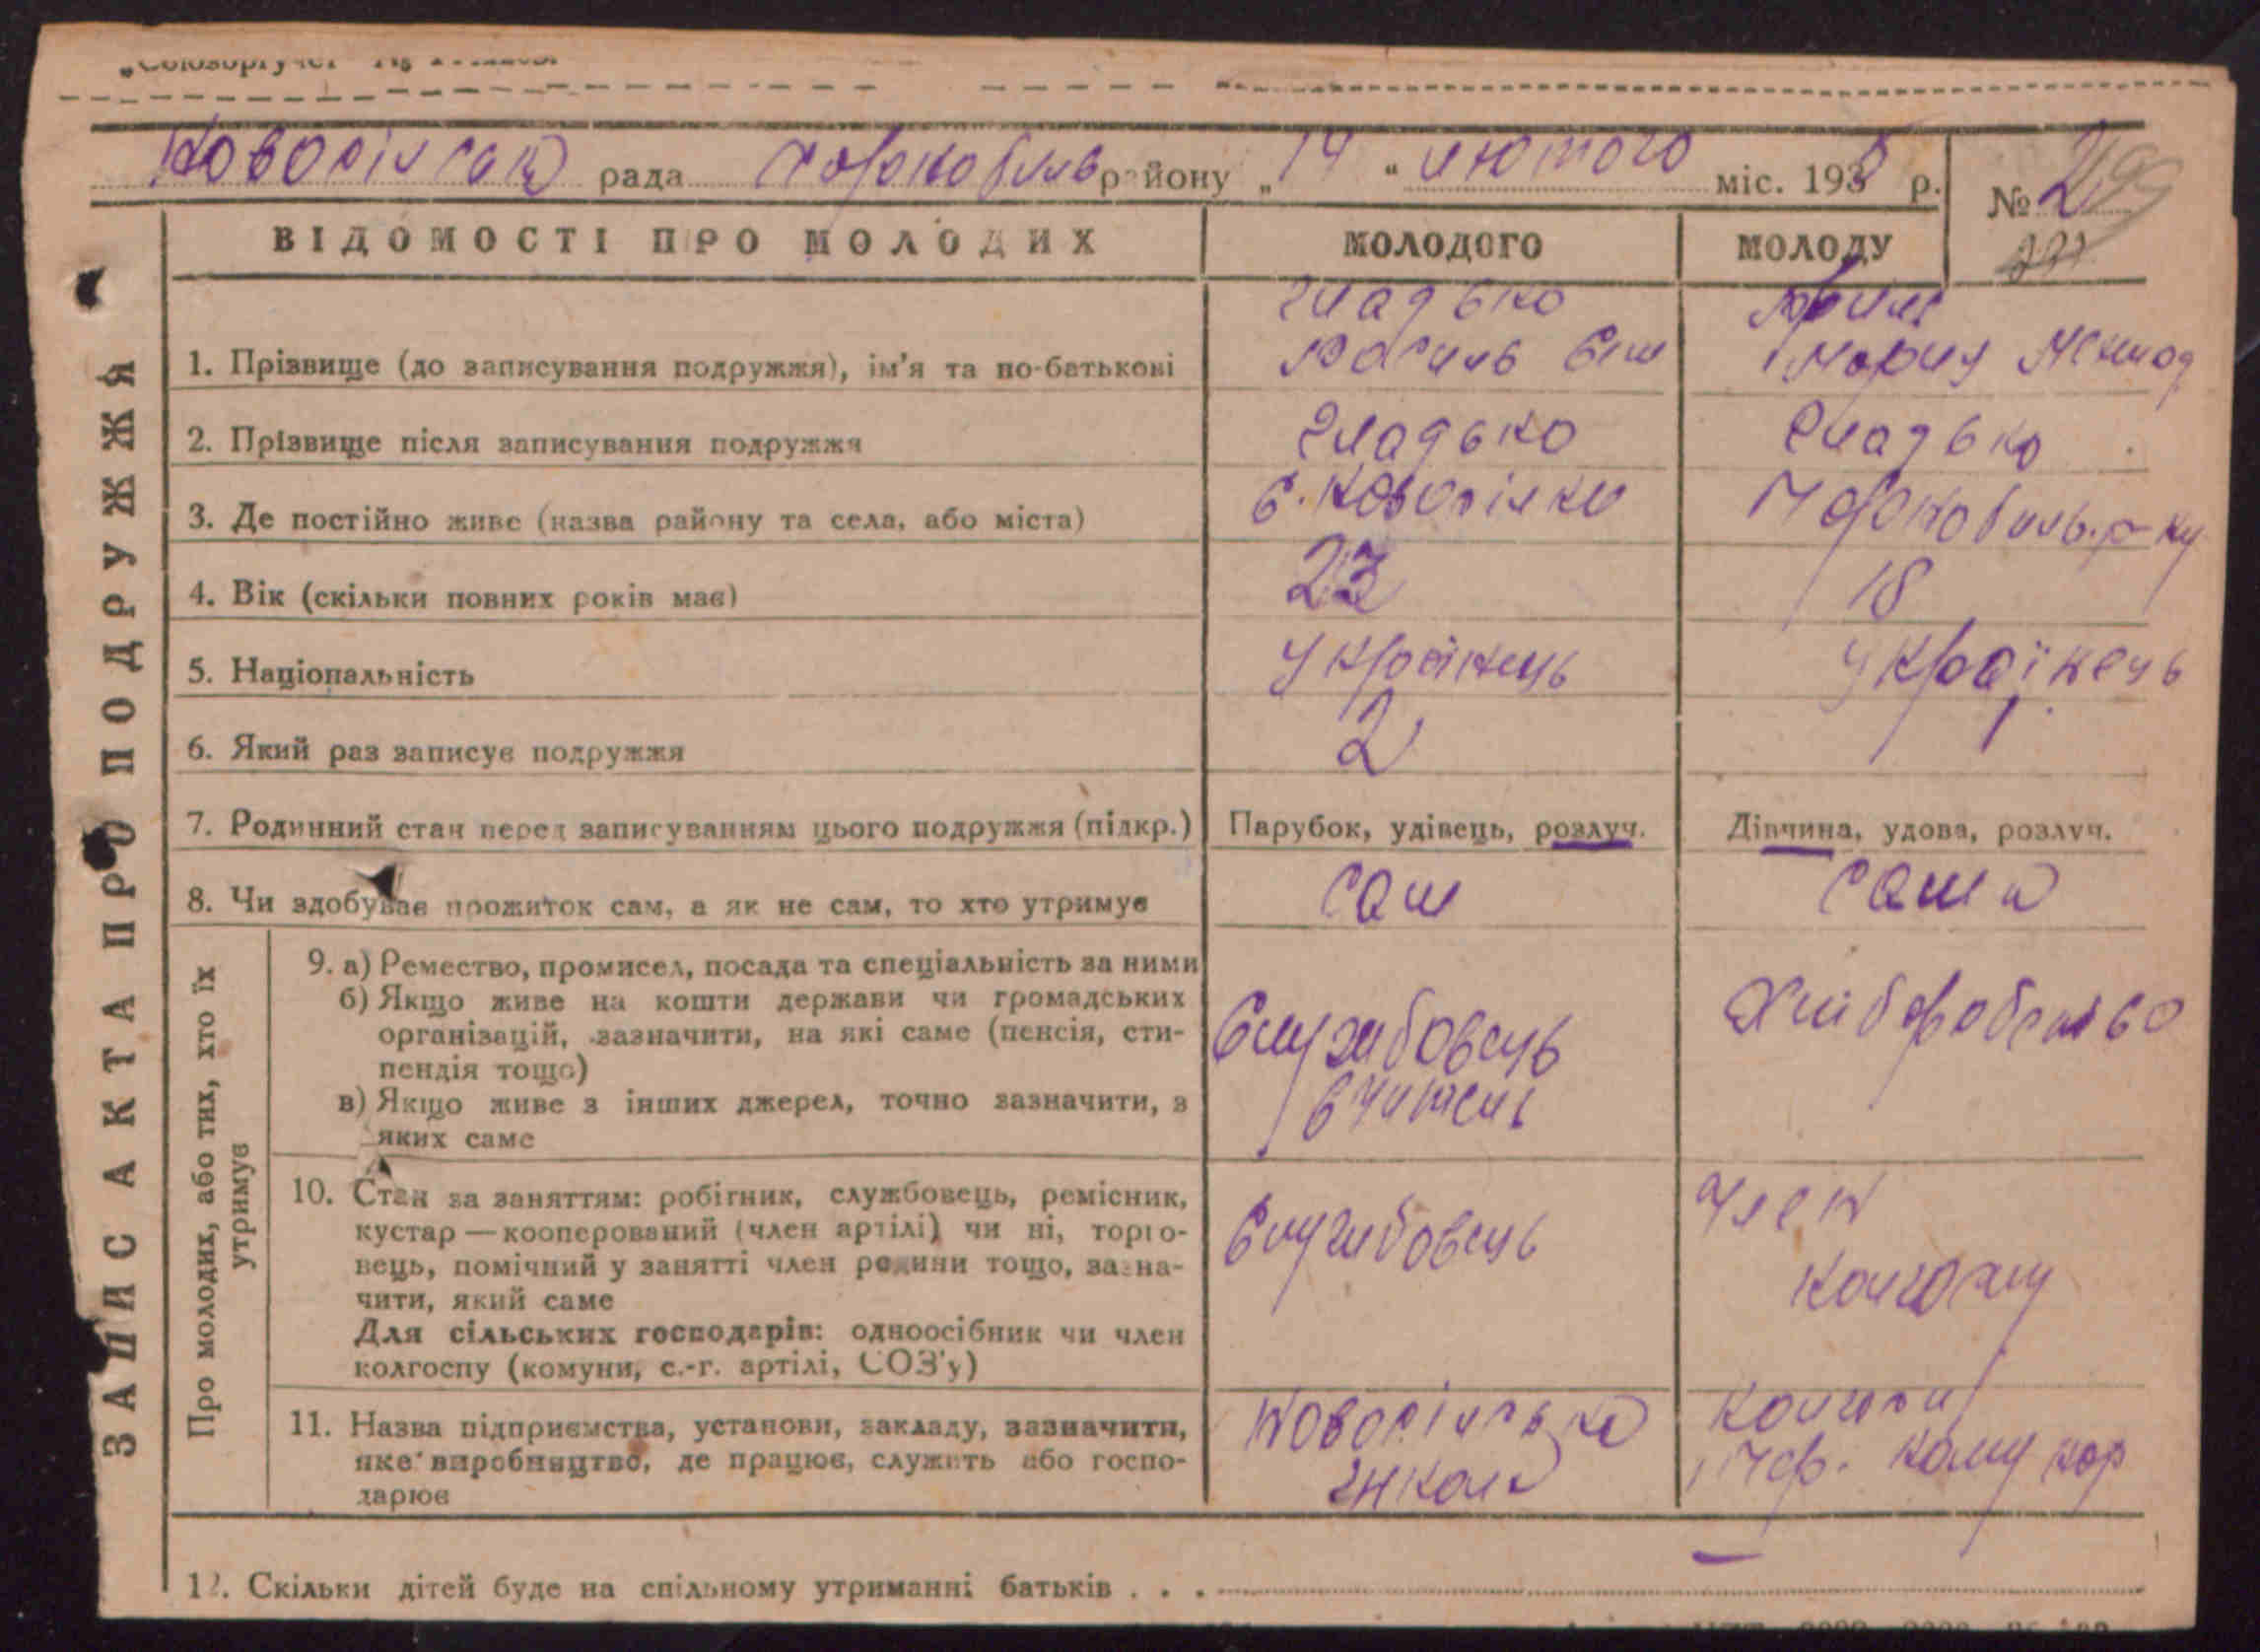 рада району „14“ лютого міс. 193 р.
№ 2
ВІДОМОСТІ ПРО МОЛОДИХ МОЛОДОГО МОЛОДУ
ЗАПИС АКТА ПРО ПОДРУЖЖЯ
Гладько
1. Прізвище (до записування подружжя), ім'я та по-батькові Василь Мария
2. Прізвище після записування подружжя Гладько Гладько
3. Де постійно живе (назва району та села, або міста) с. Новосілки
4. Вік (скільки повних років має) 23 18
5. Національність Українець Українець
6. Який раз записує подружжя 2 1
7. Родинний стан перед записуванням цього подружжя (підкр.) Парубок, удівець, розлуч. Дівчина, удова, розлуч.
8. Чи здобуває прожиток сам, а як не сам, то хто утримує сам сама
Про молодих, або тих, хто їх
утримує
9. а) Ремество, промисел, посада та спеціальність за ними
б) Якщо живе на кошти держави чи громадських
організацій, зазначити, на які саме (пенсія, сти-
пендія тощо)
в) Якщо живе з інших джерел, точно зазначити, з
яких саме
Службовець
вчитель
Хліборобство
10. Стан за заняттям: робітник, службовець, ремісник,
кустар — кооперований (член артілі) чи ні, торго-
вець, помічний у занятті член родини тощо, зазна-
чити, який саме
Для сільських господарів: одноосібник чи член
колгоспу (комуни, с.-г. артілі, СОЗ'у)
Службовець
Член
колгоспу
11. Назва підприємства, установи, закладу, зазначити,
яке виробництво, де працює, служить або госпо-
дарює
Новосільська
школа
Колгосп
12. Скільки дітей буде на спільному утриманні батьків . . . —